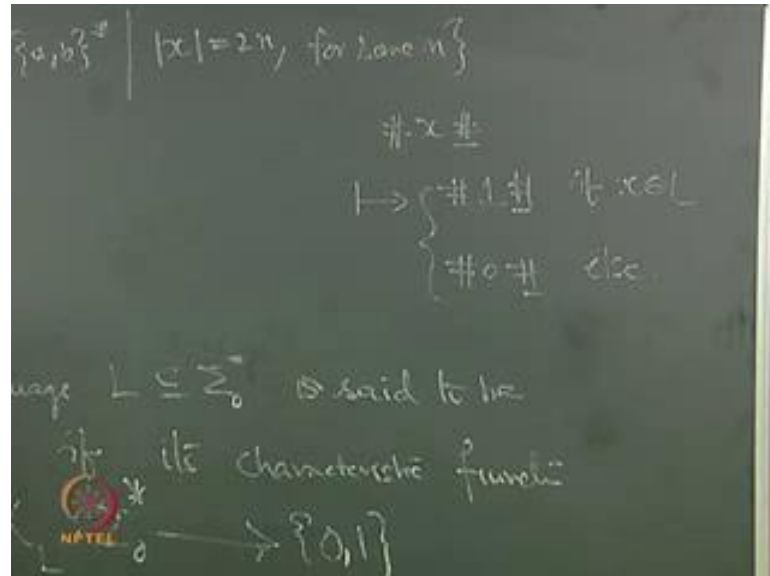 {a,b}* | |x| = 2n, for some n}
# x #
↦ { # 1 # if x ∈ L
# 0 # else
uage L ⊆ Σ₀* is said to be
if its characteristic functio
L 0* → {0,1}
NPTEL